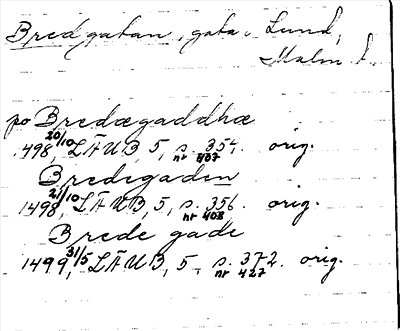 Bredgatan, gata i Lund,
Malm. l.
på Bredægaddhæ
1498 20/10, LÄUB, 5, s. 354. orig.
nr 407
Bredegaden
1498 21/10, LÄUB, 5, s. 356. orig.
nr 408
Brede gade
1499, 31/5 LÄUB, 5, s. 372. orig.
nr 427